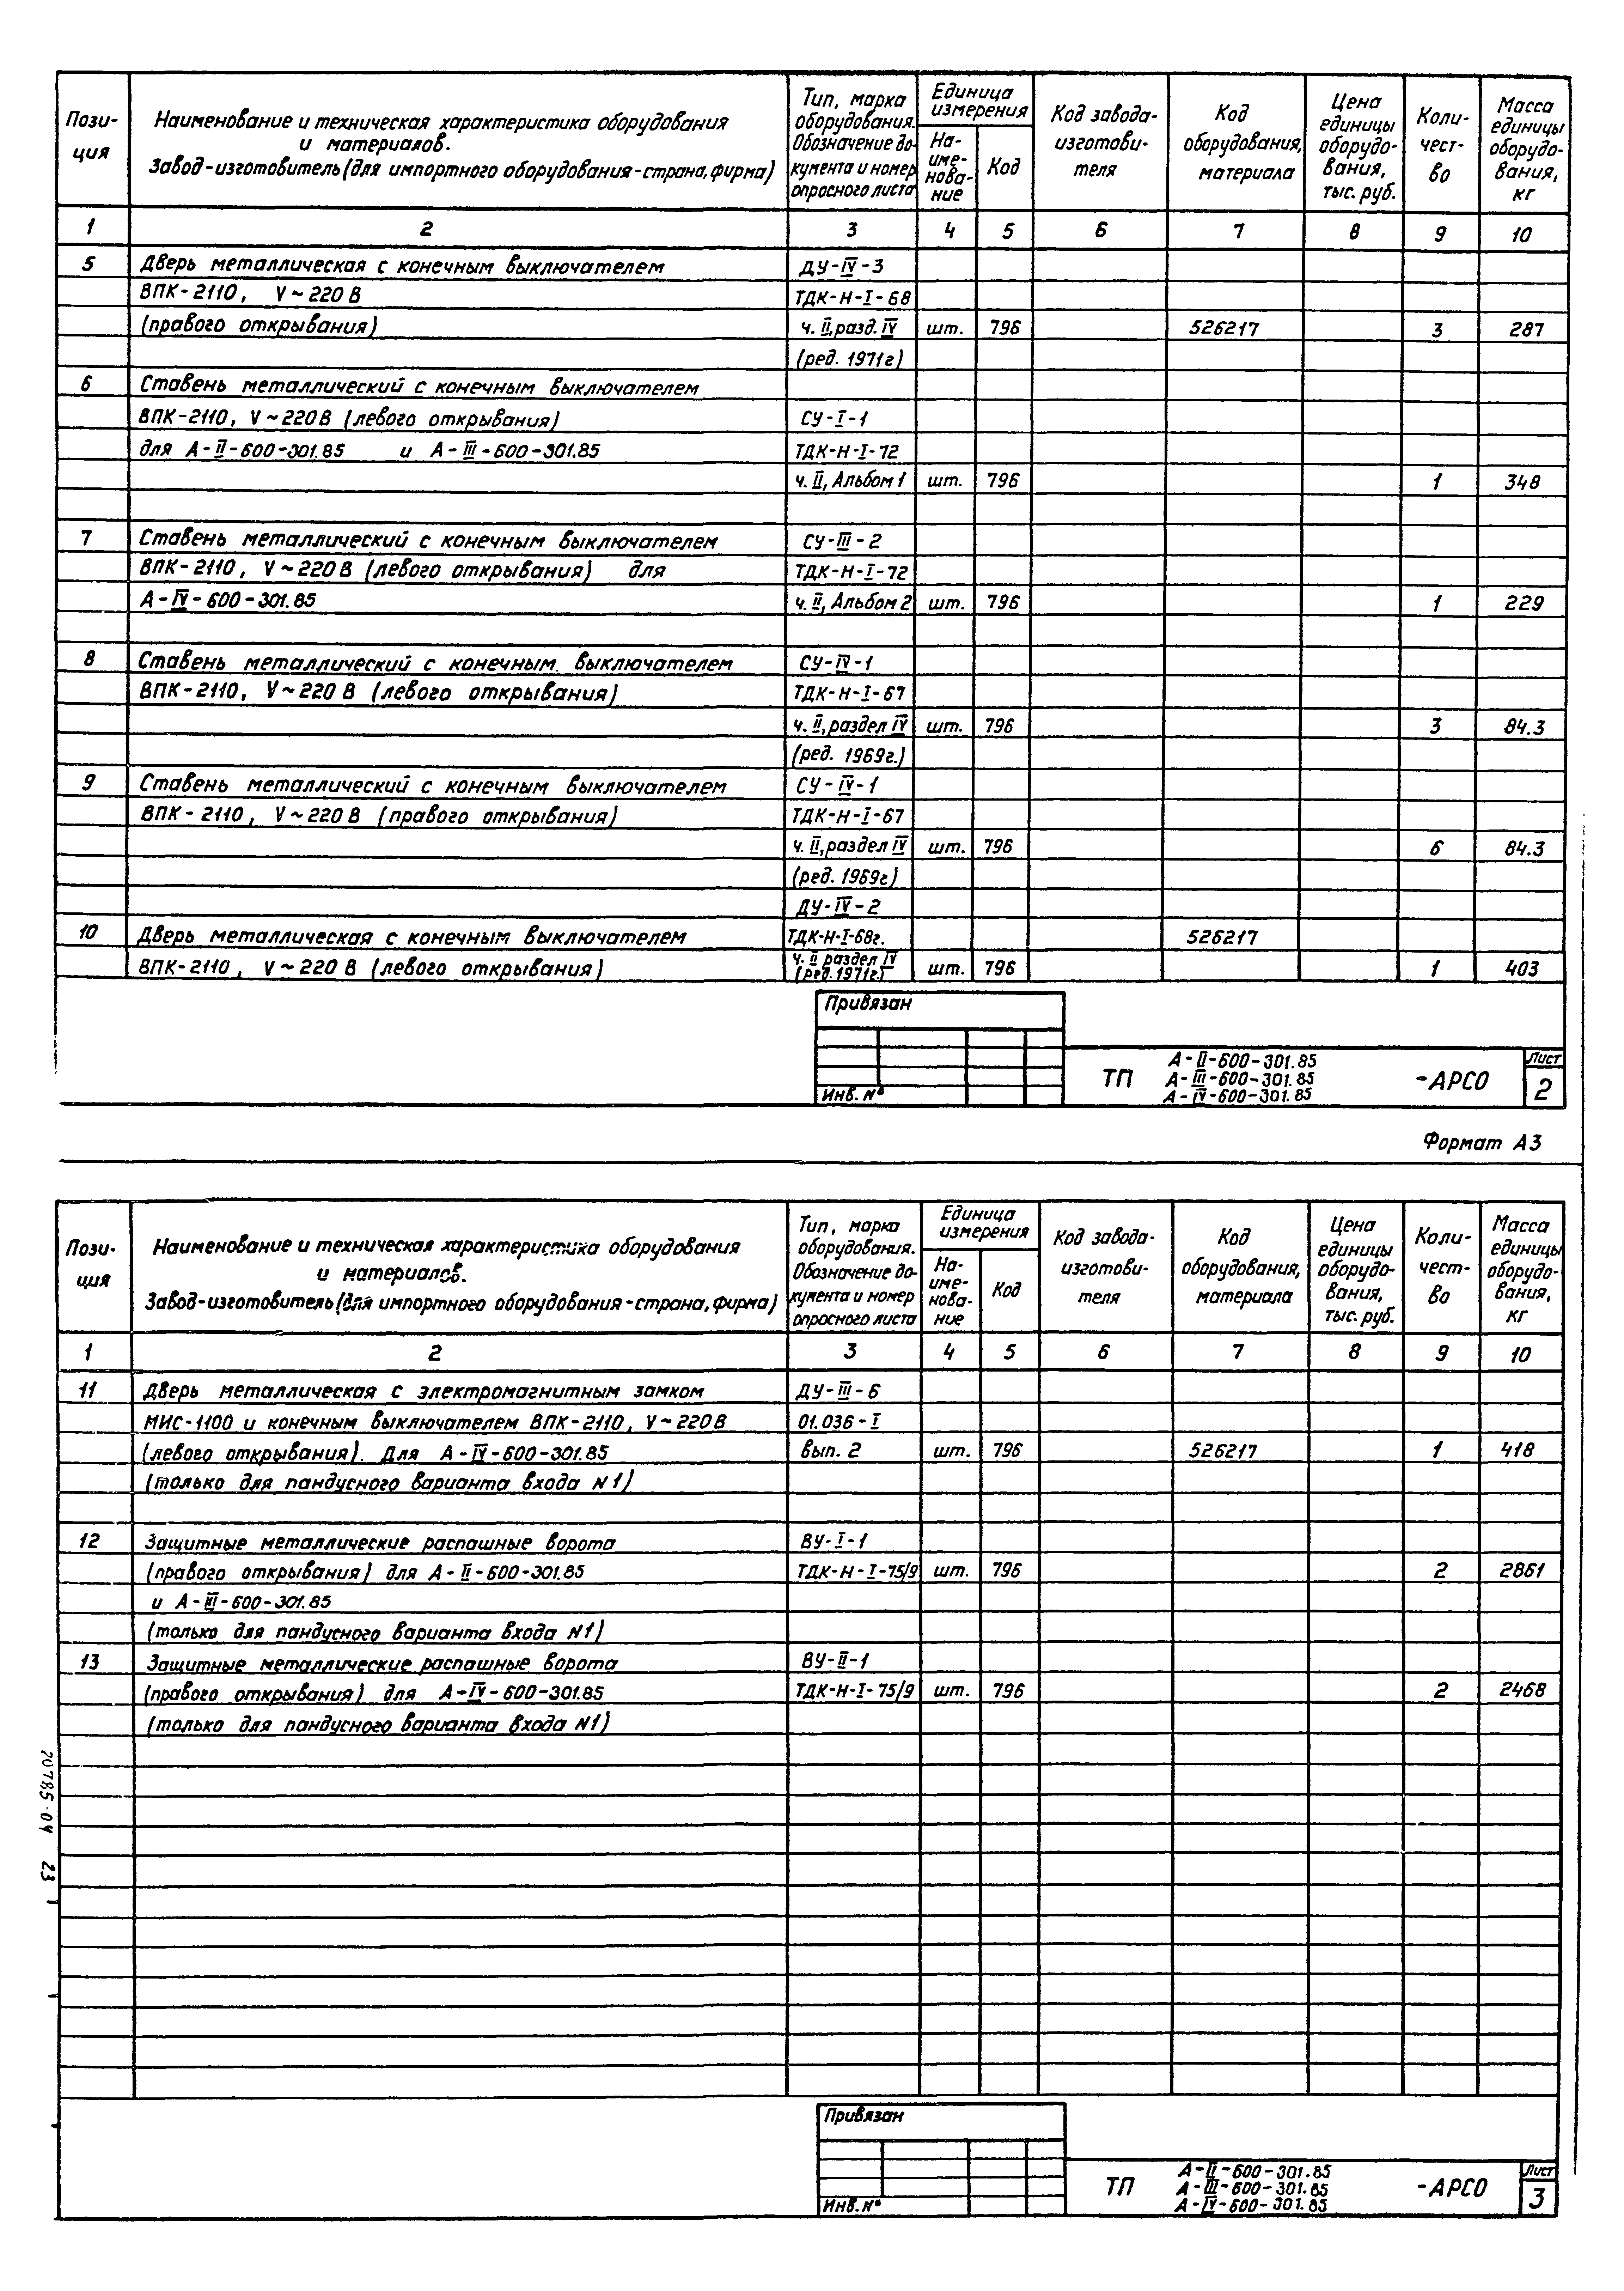 Пози-
ция
Наименование и техническая характеристика оборудования
и материалов.
Завод-изготовитель (для импортного оборудования - страна, фирма)
Тип, марка
оборудования.
Обозначение до-
кумента и номер
опросного листа
Единица
измерения
На-
име-
нова-
ние
Код
Код завода-
изготови-
теля
Код
оборудования,
материала
Цена
единицы
оборудо-
вания,
тыс. руб.
Коли-
чест-
во
Масса
единицы
оборудо-
вания,
кг
1 2 3 4 5 6 7 8 9 10
5 Дверь металлическая с конечным выключателем ДУ-IV-3
ВПК-2110, V~220 В ТДК-Н-I-68
(правого открывания) ч. II, разд. IV шт. 796 526217 3 287
(ред. 1971г)
6 Ставень металлический с конечным выключателем
ВПК-2110, V~220 В (левого открывания) СУ-I-1
для А-II-600-301.85 и А-III-600-301.85 ТДК-Н-I-72
ч. II, Альбом 1 шт. 796 1 348
7 Ставень металлический с конечным выключателем СУ-III-2
ВПК-2110, V~220 В (левого открывания) для ТДК-Н-I-72
А-IV-600-301.85 ч. II, Альбом 2 шт. 796 1 229
8 Ставень металлический с конечным выключателем СУ-IV-1
ВПК-2110, V~220 В (левого открывания) ТДК-Н-I-67
ч. II, раздел IV шт. 796 3 84.3
(ред. 1969г.)
9 Ставень металлический с конечным выключателем СУ-IV-1
ВПК-2110, V~220 В (правого открывания) ТДК-Н-I-67
ч. II, раздел IV шт. 796 6 84.3
(ред. 1969г)
ДУ-IV-2
10 Дверь металлическая с конечным выключателем ТДК-Н-I-68г. 526217
ВПК-2110, V~220 В (левого открывания) ч. II раздел IV шт. 796 1 403
(ред. 1971г.)
Привязан
Инв. №
ТП
А-II-600-301.85
А-III-600-301.85
А-IV-600-301.85
-АРСО
Лист
2
Формат А3
Пози-
ция
Наименование и техническая характеристика оборудования
и материалов.
Завод-изготовитель (для импортного оборудования - страна, фирма)
Тип, марка
оборудования.
Обозначение до-
кумента и номер
опросного листа
Единица
измерения
На-
име-
нова-
ние
Код
Код завода-
изготови-
теля
Код
оборудования,
материала
Цена
единицы
оборудо-
вания,
тыс. руб.
Коли-
чест-
во
Масса
единицы
оборудо-
вания,
кг
1 2 3 4 5 6 7 8 9 10
11 Дверь металлическая с электромагнитным замком ДУ-III-6
МИС-1100 и конечным выключателем ВПК-2110, V~220 В 01.036-I
(левого открывания). Для А-IV-600-301.85 вып. 2 шт. 796 526217 1 418
(только для пандусного варианта входа N1)
12 Защитные металлические распашные ворота ВУ-I-1
(правого открывания) для А-II-600-301.85 ТДК-Н-I-75/9 шт. 796 2 2861
и А-III-600-301.85
(только для пандусного варианта входа N1)
13 Защитные металлические распашные ворота ВУ-II-1
(правого открывания) для А-IV-600-301.85 ТДК-Н-I-75/9 шт. 796 2 2468
(только для пандусного варианта входа N1)
20785-04 23
Привязан
Инв. №
ТП
А-II-600-301.85
А-III-600-301.85
А-IV-600-301.85
-АРСО
Лист
3